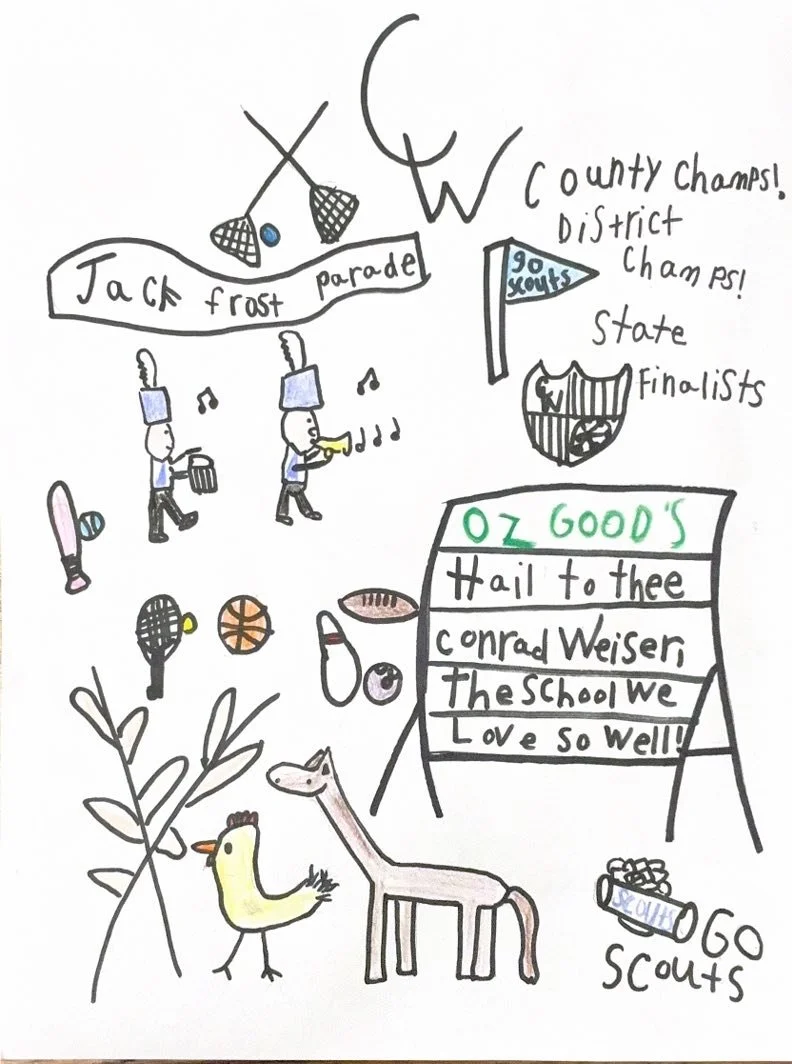 CW
County Champs!
District
Champs!
State
Finalists
Jack frost parade
go
scouts
CW
OZ GOOD'S
Hail to thee
conrad Weiser,
The School We
Love so well!
Scouts
GO
Scouts